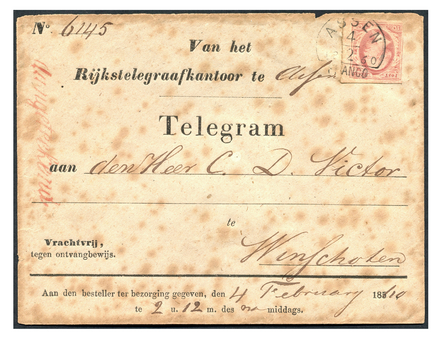 No. 6145
ASSEN
4
2
60
Van het
Rijkstelegraafkantoor te Assen
Telegram
aan den Heer C. D. Victor
te
Winschoten
Vrachtvrij,
tegen ontvangbewijs.
Aan den besteller ter bezorging gegeven, den 4 February 1860
te 2 u. 12 m. des na middags.